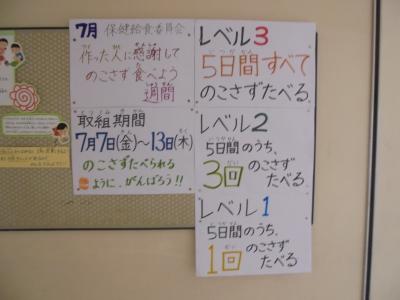 7月 保健給食委員会
作った人に感謝して
のこさず食べよう
週間
取組期間
7月7日(金)～13日(木)
のこさずたべられる
ように、がんばろう!!
レベル3
5日間すべて
のこさずたべる
レベル2
5日間のうち、
3回のこさず
たべる
レベル1
5日間のうち、
1回のこさず
たべる